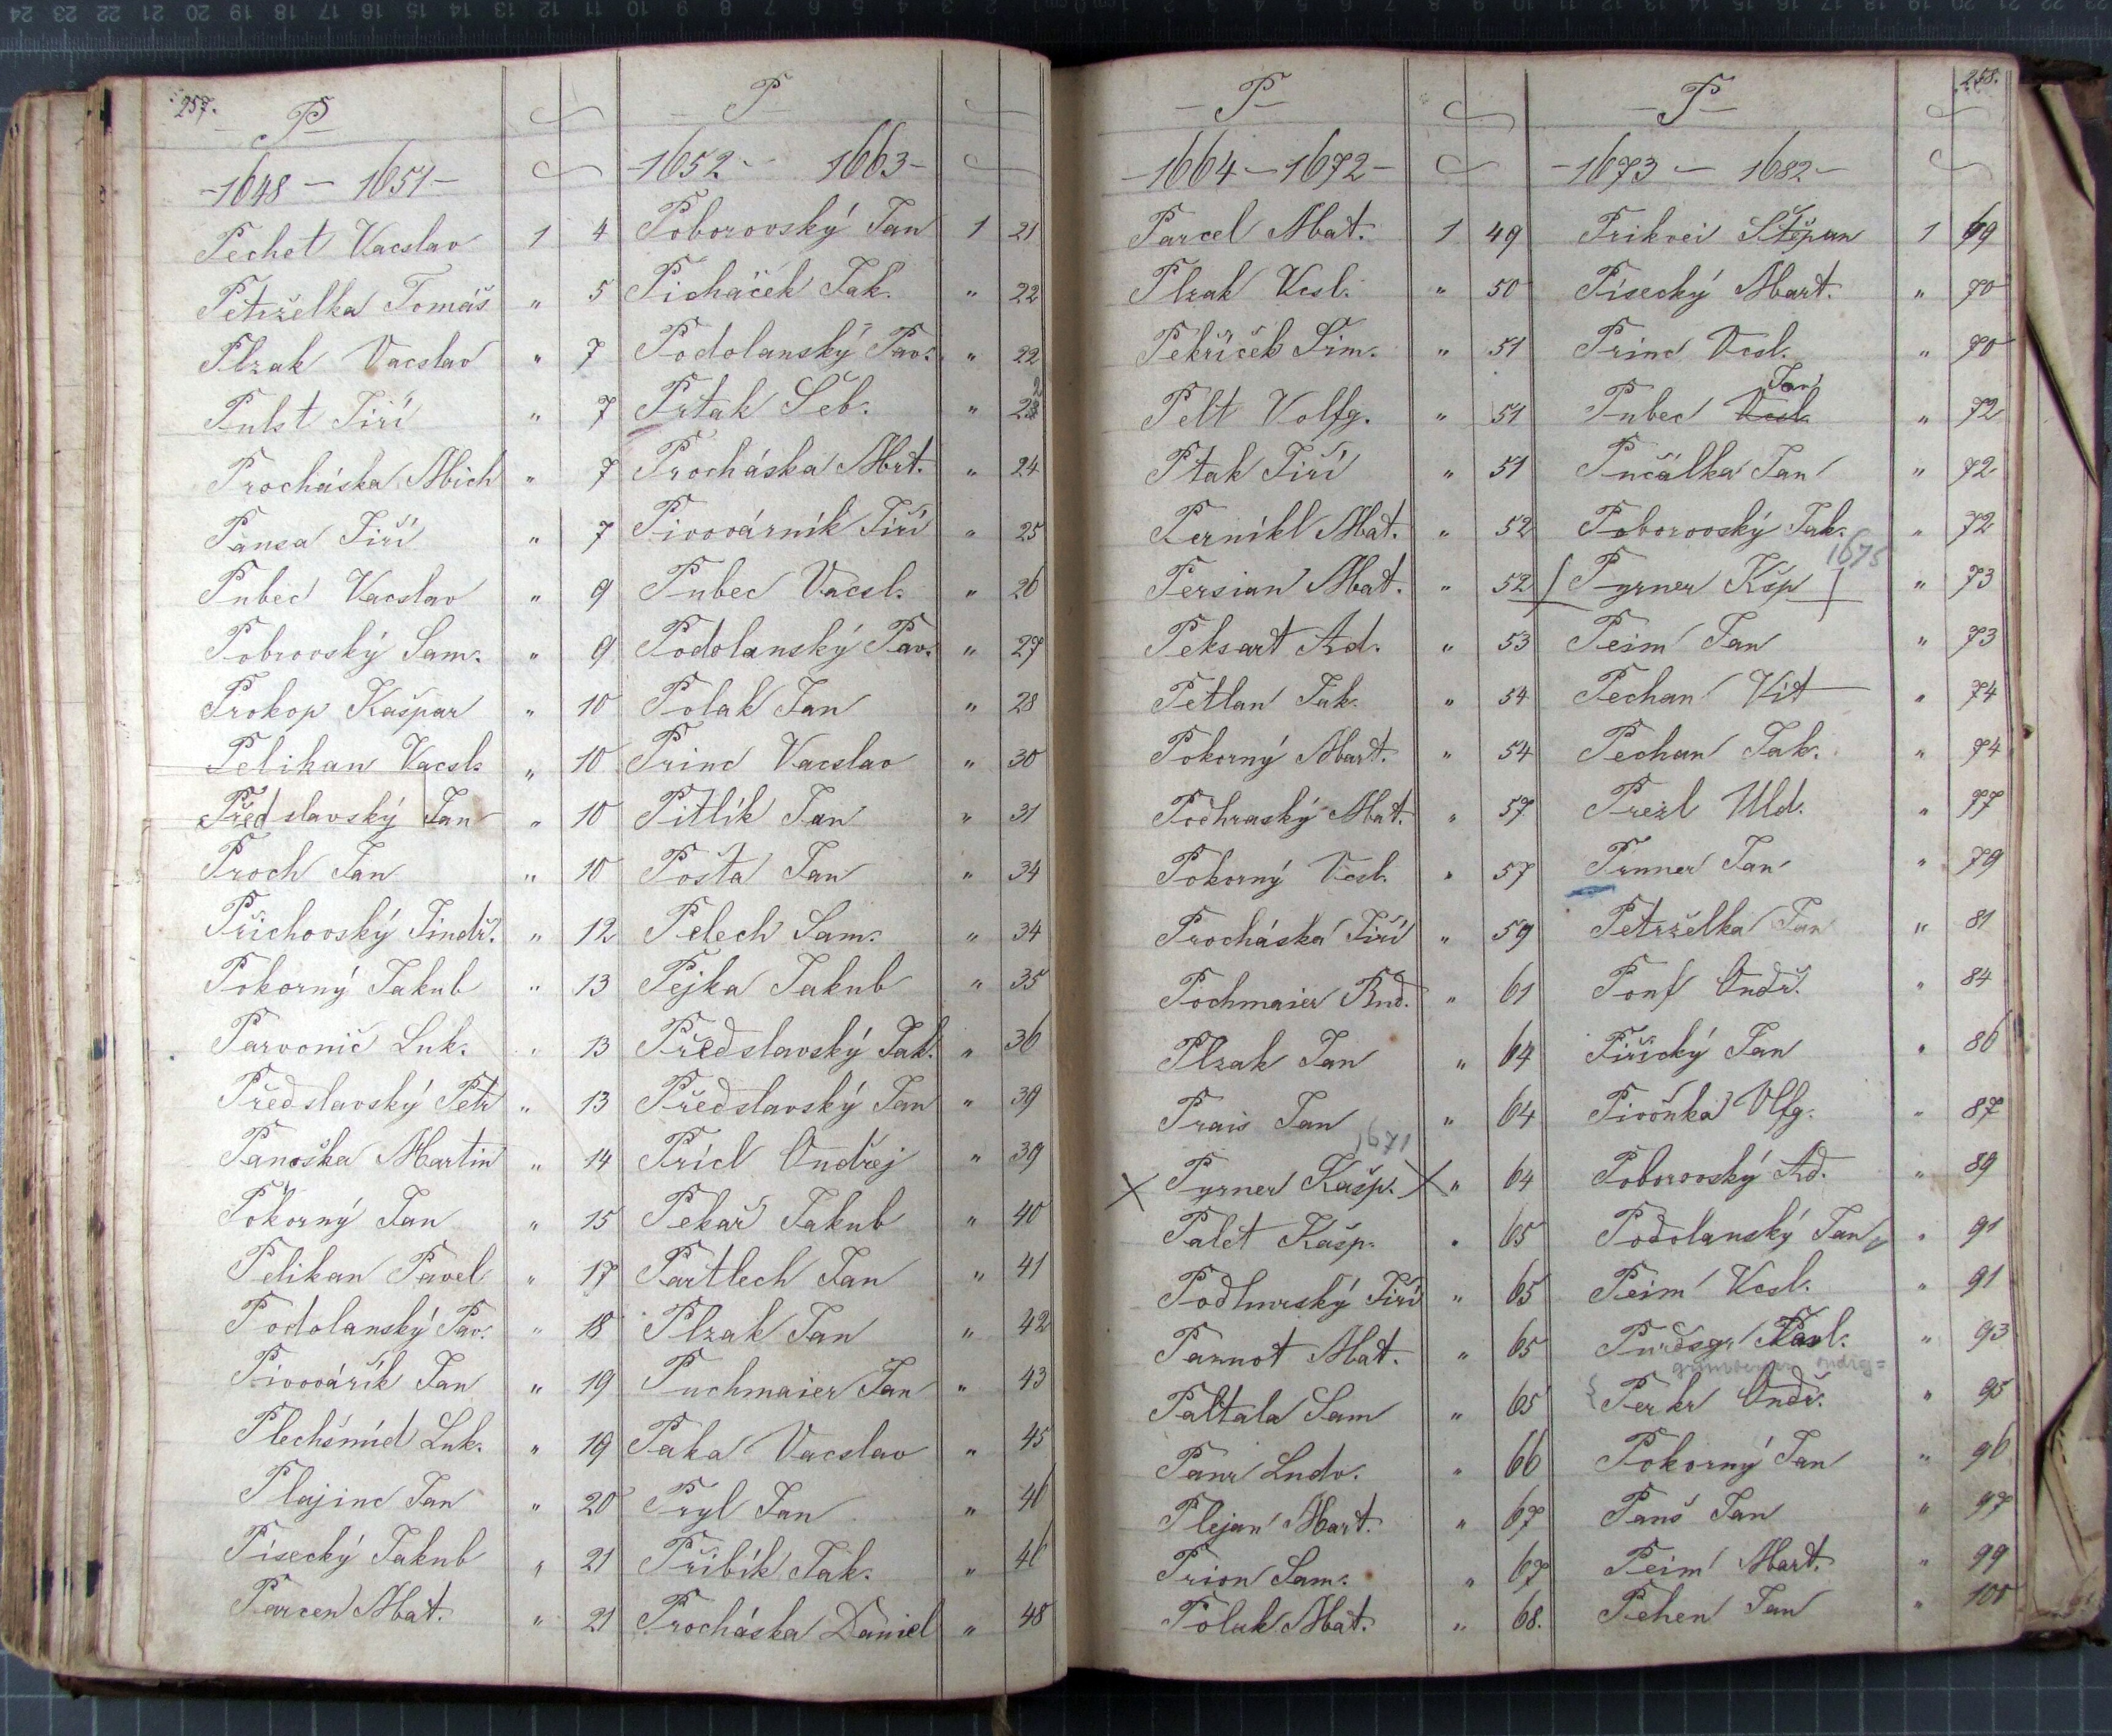 257.
P
1648 - 1651
Pechet Vacslav 1 4
Petrželka Tomáš " 5
Plzak Vacslav " 7
Pulst Jiří " 7
Procháska Mich " 7
Pansa Jiří " 7
Pubec Vacslav " 9
Pobrovský Sam. " 9
Prokop Kašpar " 10
Pelikan Vacsl. " 10
Předslavský Jan " 10
Proch Jan " 10
Přichovský Jindř. " 12
Pokorný Jakub " 13
Parvonič Luk. " 13
Předslavský Petr " 13
Panoška Martin " 14
Pokorný Jan " 15
Pelikan Pavel " 17
Podolanský Pav. " 18
Pivovářík Jan " 19
Plechšmíd Luk. " 19
Plajinc Jan " 20
Písecký Jakub " 21
Parcen Mat. " 21
P
1652 - 1663
Poborovský Jan 1 21
Picháček Jak. " 22
Podolanský Pav. " 22
Prtak Šeb. " 22
Procháska Mrt. " 24
Pivovárník Jiří " 25
Pubec Vacsl. " 26
Podolanský Pav. " 27
Polak Jan " 28
Princ Vacslav " 30
Pitlík Jan " 31
Pošta Jan " 34
Pelech Sam. " 34
Pejka Jakub " 35
Předslavský Jak. " 36
Předslavský Jan " 39
Pricl Ondřej " 39
Pekař Jakub " 40
Partlech Jan " 41
Plzak Jan " 42
Puchmaier Jan " 43
Paka Vacslav " 45
Pryl Jan " 46
Přibík Jak. " 46
Procháska Daniel " 48
P
1664 - 1672
Parcel Mat. 1 49
Plzak Vcsl. " 50
Pekříček Šim. " 51
Pelt Volfg. " 51
Ptak Jiří " 51
Pernikl Mat. " 52
Persian Mat. " 52
Peksart Ad. " 53
Petlan Jak. " 54
Pokorný Mart. " 54
Pochraský Mat. " 57
Pokorný Vcsl. " 57
Procháska Jiří " 59
Pochmaier Rud. " 61
Plzak Jan " 64
Prais Jan " 64
1671
Pyrner Kašp. " 64
Palet Kašp. " 65
Podhurský Jiří " 65
Pannot Mat. " 65
Paltala Sam " 65
Panr Ludv. " 66
Plejan Mart. " 67
Prion Sam. " 67
Polak Mat. " 68.
258.
P
1673 - 1682
Prikvei Štěpan 1 69
Písecký Mart. " 70
Princ Vcsl. " 70
Jan
Pubec Vcsl. " 72
Pučálka Jan " 72
Poborovský Jak. " 72
1675
Pyrner Kšp " 73
Peim Jan " 73
Pechan Vít " 74
Pechan Jak. " 74
Prezl Uld. " 77
Prunner Jan " 79
Petrželka Jan " 81
Ponf Ondř. " 84
Piřický Jan " 86
Pivoňka Vlfg. " 87
Poborovský Ad. " 89
Podolanský Jan " 91
Peim Vcsl. " 91
" 93
Perkr Ondř. " 95
Pokorný Jan " 96
Panš Jan " 97
Peim Mart. " 99
Pehen Jan " 100